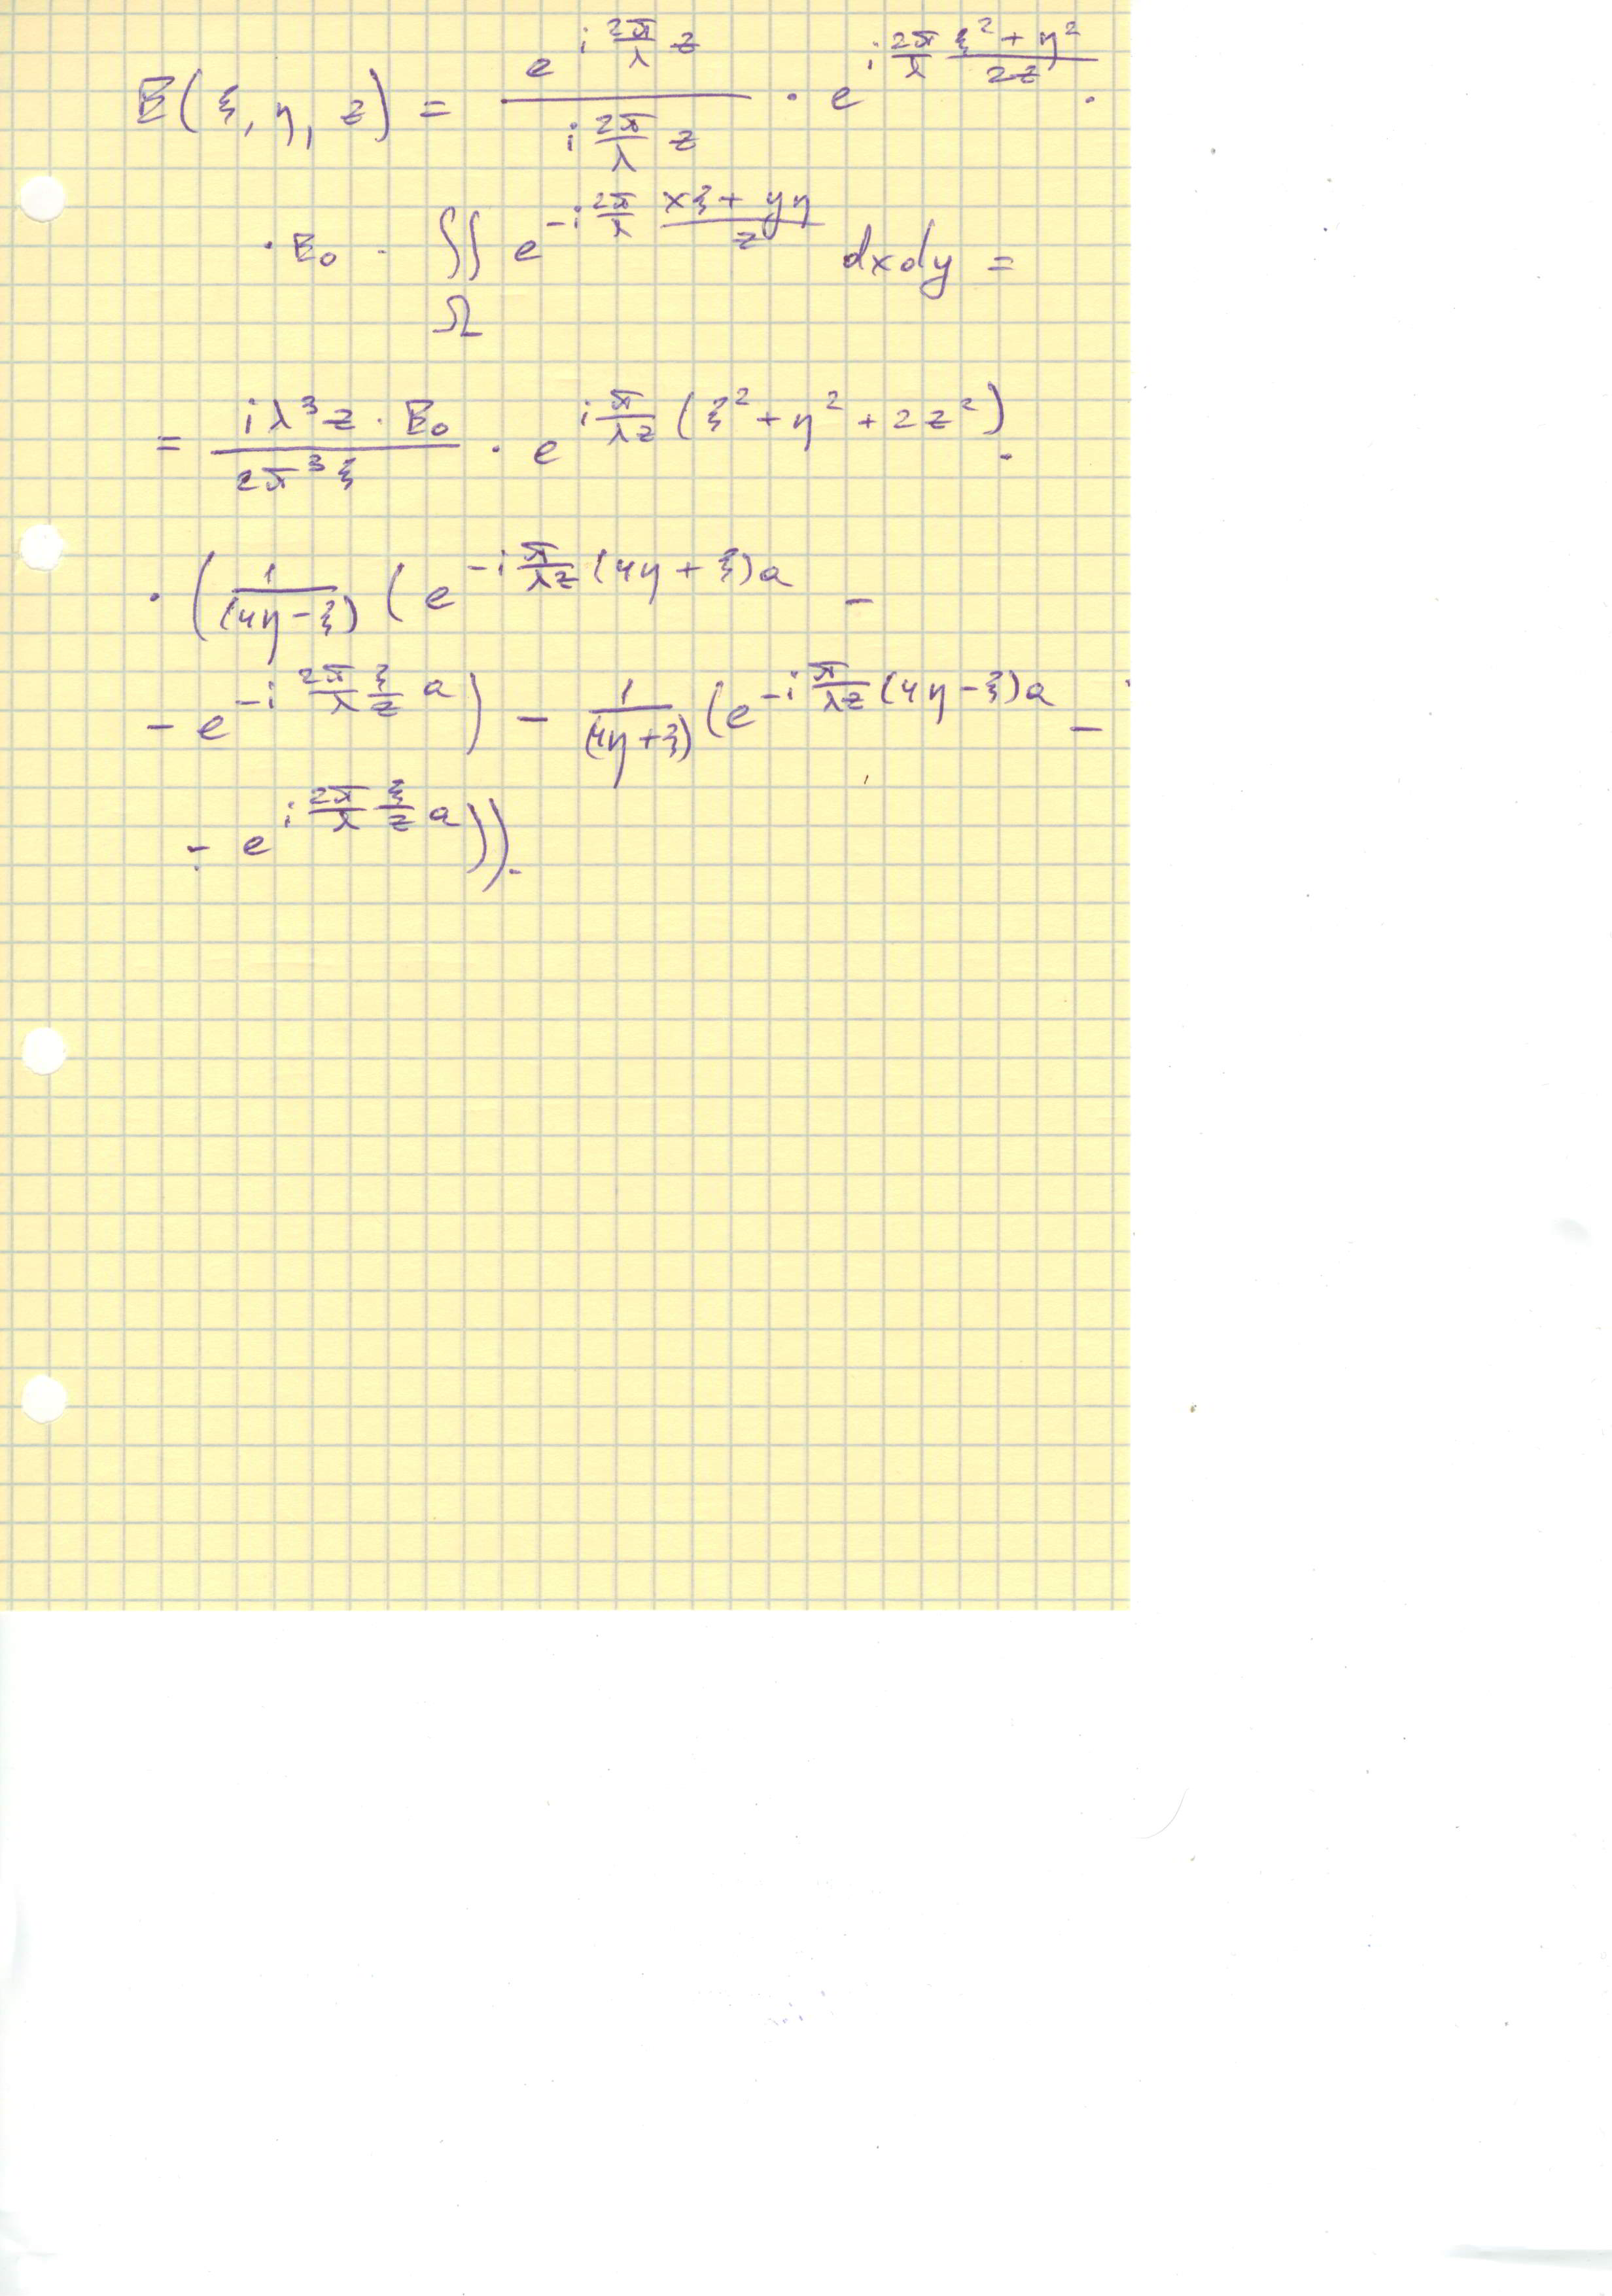 E(ξ, η, z) = \frac{e^{i \frac{2π}{λ} z}}{i \frac{2π}{λ} z} · e^{i \frac{2π}{λ} \frac{ξ^2 + η^2}{2z}} ·
· E_0 · ∬_Ω e^{-i \frac{2π}{λ} \frac{xξ + yη}{z}} dxdy =
= \frac{i λ^3 z · E_0}{2π^3 ξ} · e^{i \frac{π}{λz} (ξ^2 + η^2 + 2z^2)} ·
· ( \frac{1}{(4η - ξ)} ( e^{-i \frac{π}{λz} (4η + ξ)a} -
- e^{-i \frac{2π}{λ} \frac{ξ}{z} a} ) - \frac{1}{(4η + ξ)} ( e^{-i \frac{π}{λz} (4η - ξ)a} -
- e^{i \frac{2π}{λ} \frac{ξ}{z} a} )).